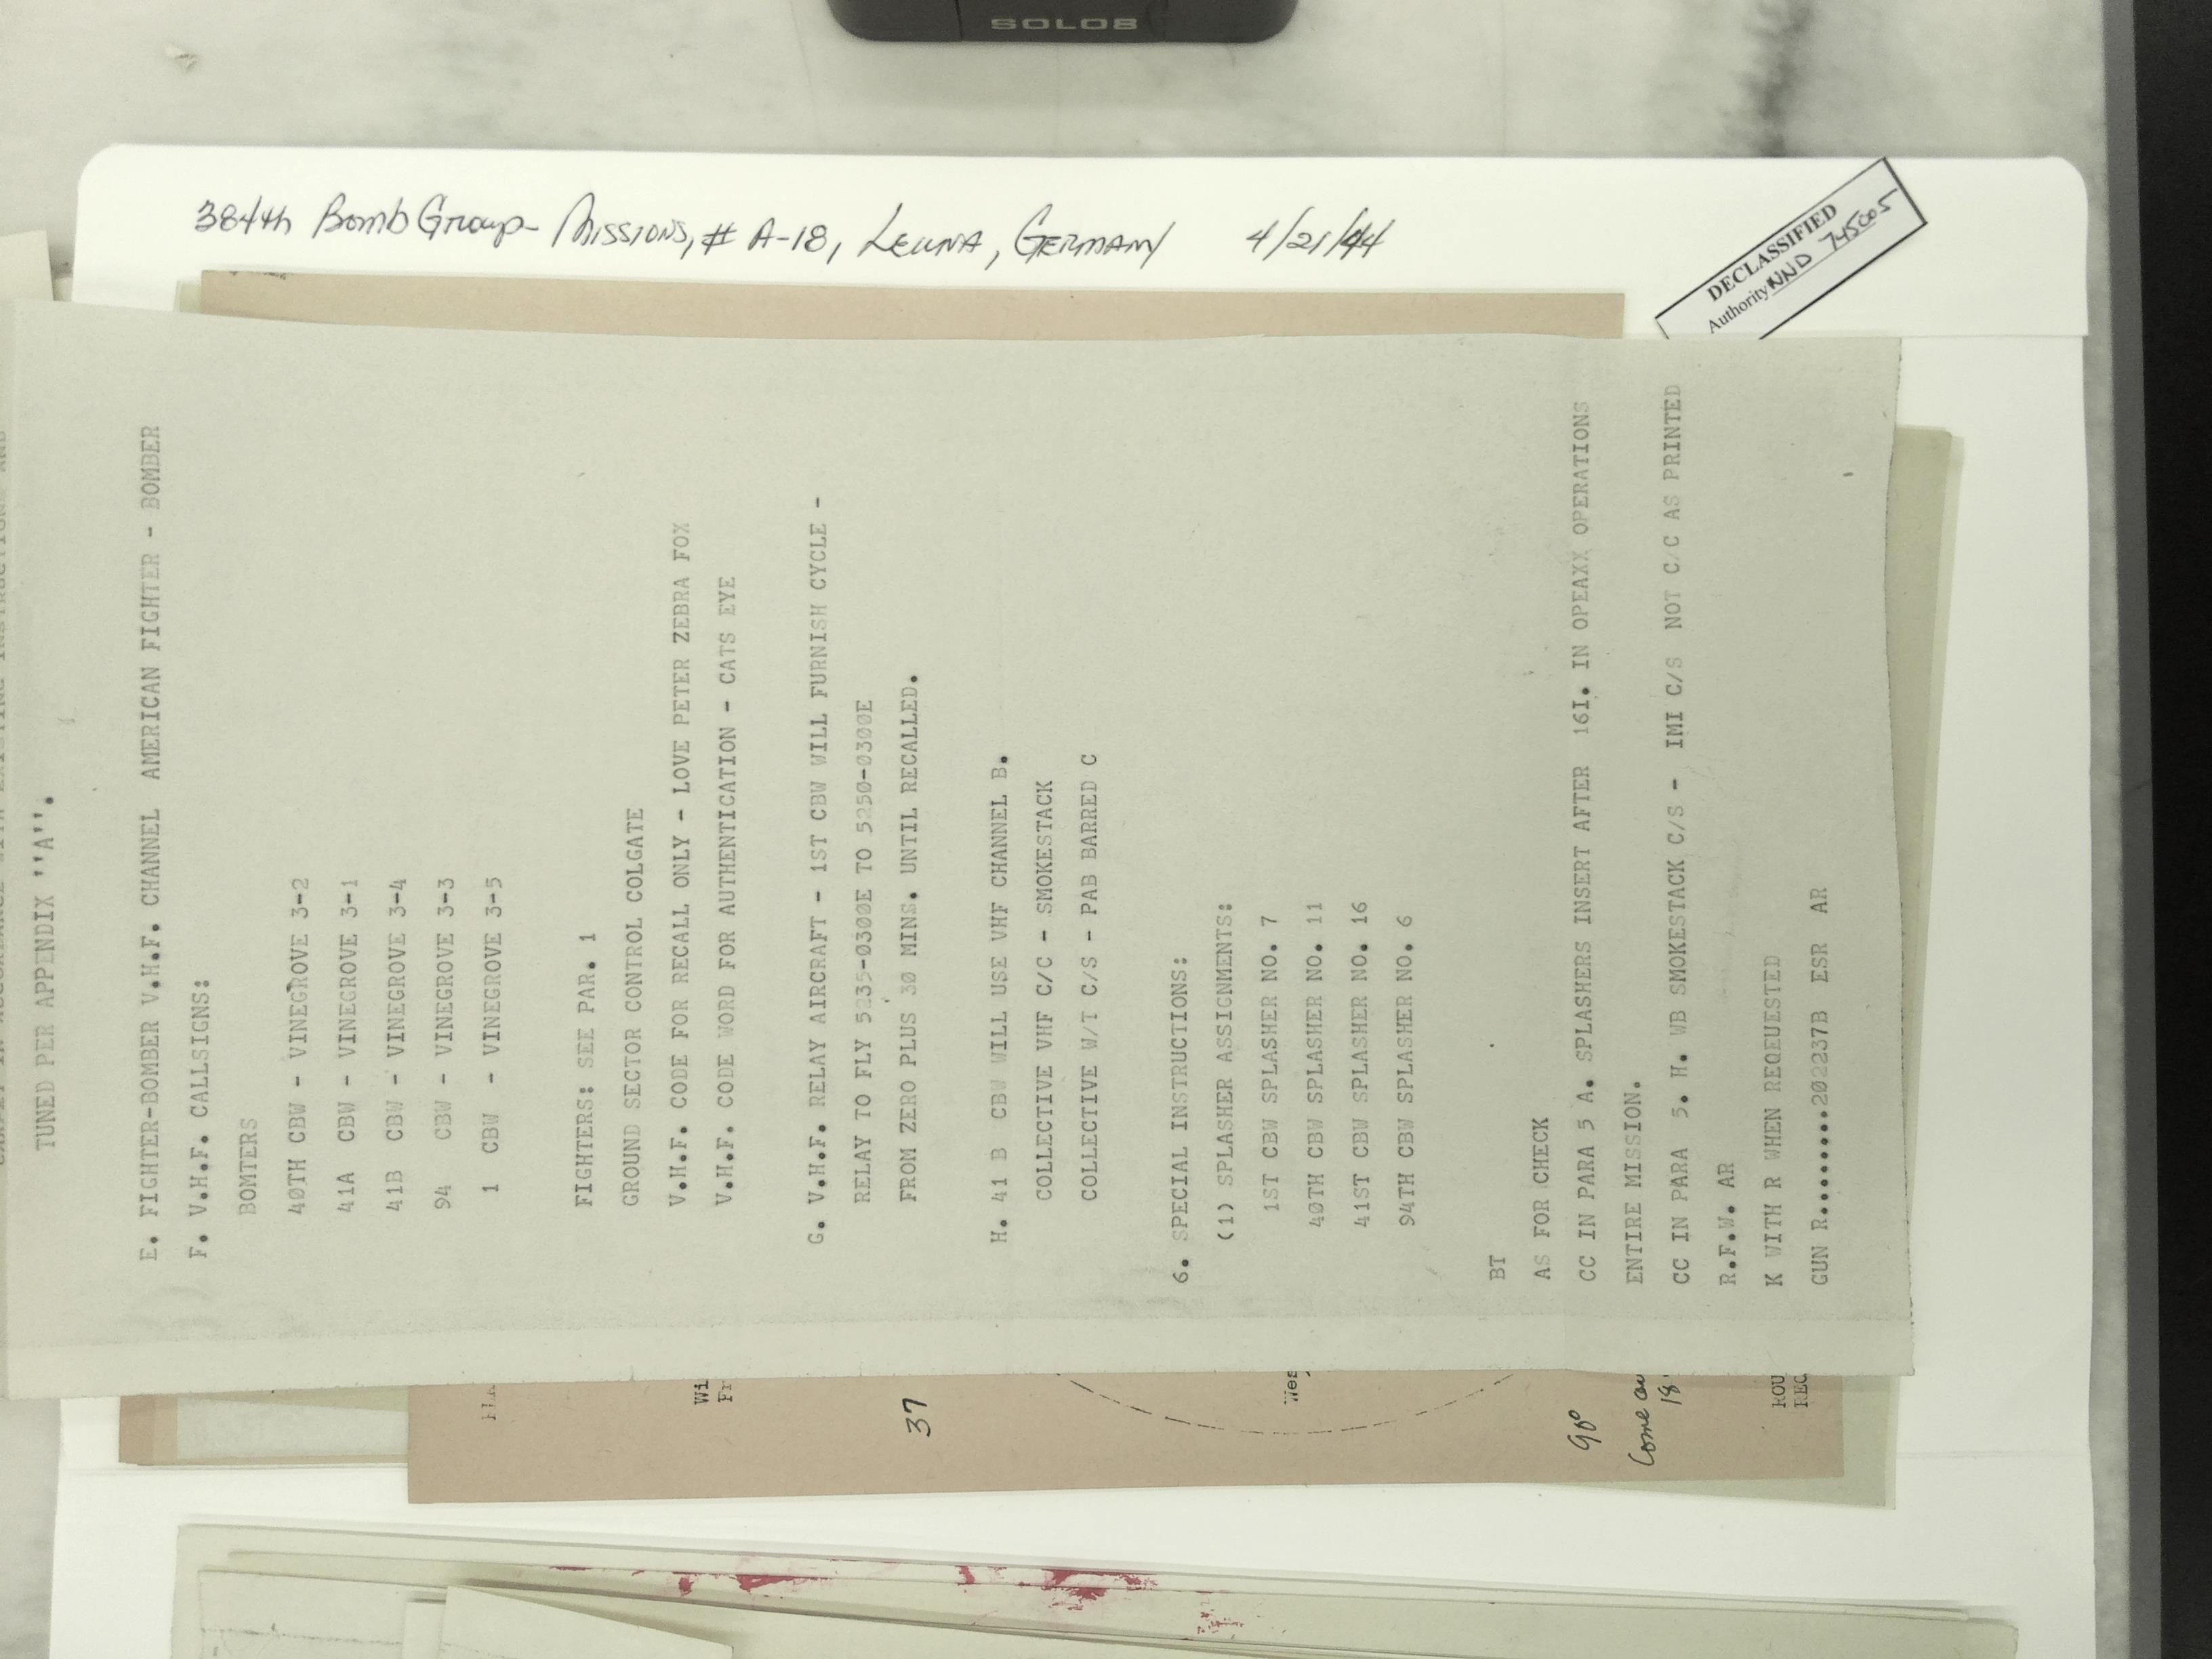 SOLO8
384th Bomb Group- Missions, # A-18, Leuna, Germany 4/21/44
DECLASSIFIED
Authority NND 745005
TUNED PER APPENDIX ''A''.
E. FIGHTER-BOMBER V.H.F. CHANNEL AMERICAN FIGHTER - BOMBER
F. V.H.F. CALLSIGNS:
BOMTERS
40TH CBW - VINEGROVE 3-2
41A CBW - VINEGROVE 3-1
41B CBW - VINEGROVE 3-4
94 CBW - VINEGROVE 3-3
1 CBW - VINEGROVE 3-5
FIGHTERS: SEE PAR. 1
GROUND SECTOR CONTROL COLGATE
V.H.F. CODE FOR RECALL ONLY - LOVE PETER ZEBRA FOX
V.H.F. CODE WORD FOR AUTHENTICATION - CATS EYE
G. V.H.F. RELAY AIRCRAFT - 1ST CBW WILL FURNISH CYCLE -
RELAY TO FLY 5235-0300E TO 5250-0300E
FROM ZERO PLUS 30 MINS. UNTIL RECALLED.
H. 41 B CBW WILL USE VHF CHANNEL B.
COLLECTIVE VHF C/C - SMOKESTACK
COLLECTIVE W/T C/S - PAB BARRED C
6. SPECIAL INSTRUCTIONS:
(1) SPLASHER ASSIGNMENTS:
1ST CBW SPLASHER NO. 7
40TH CBW SPLASHER NO. 11
41ST CBW SPLASHER NO. 16
94TH CBW SPLASHER NO. 6
BT
AS FOR CHECK
CC IN PARA 5 A. SPLASHERS INSERT AFTER 16I. IN OPEAXX OPERATIONS
ENTIRE MISSION.
CC IN PARA 5. H. WB SMOKESTACK C/S - IMI C/S NOT C/C AS PRINTED
R.F.W. AR
K WITH R WHEN REQEUESTED
GUN R.........202237B ESR AR
Wi
Fr
37
Wes
90°
Come ou
18
ROU
REC